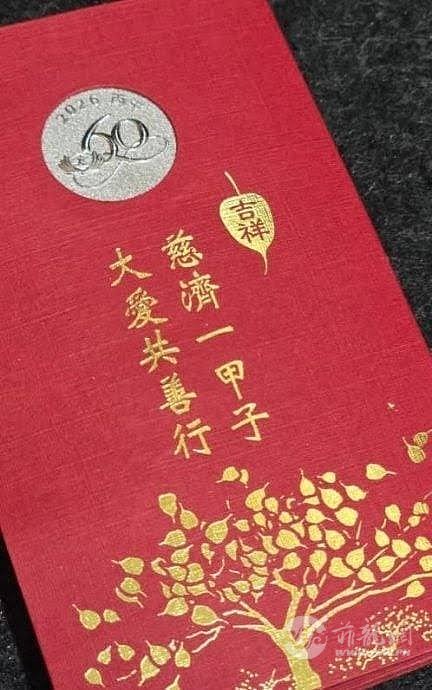 2026 丙午
60
吉祥
慈濟一甲子
大愛共善行
菲龍網